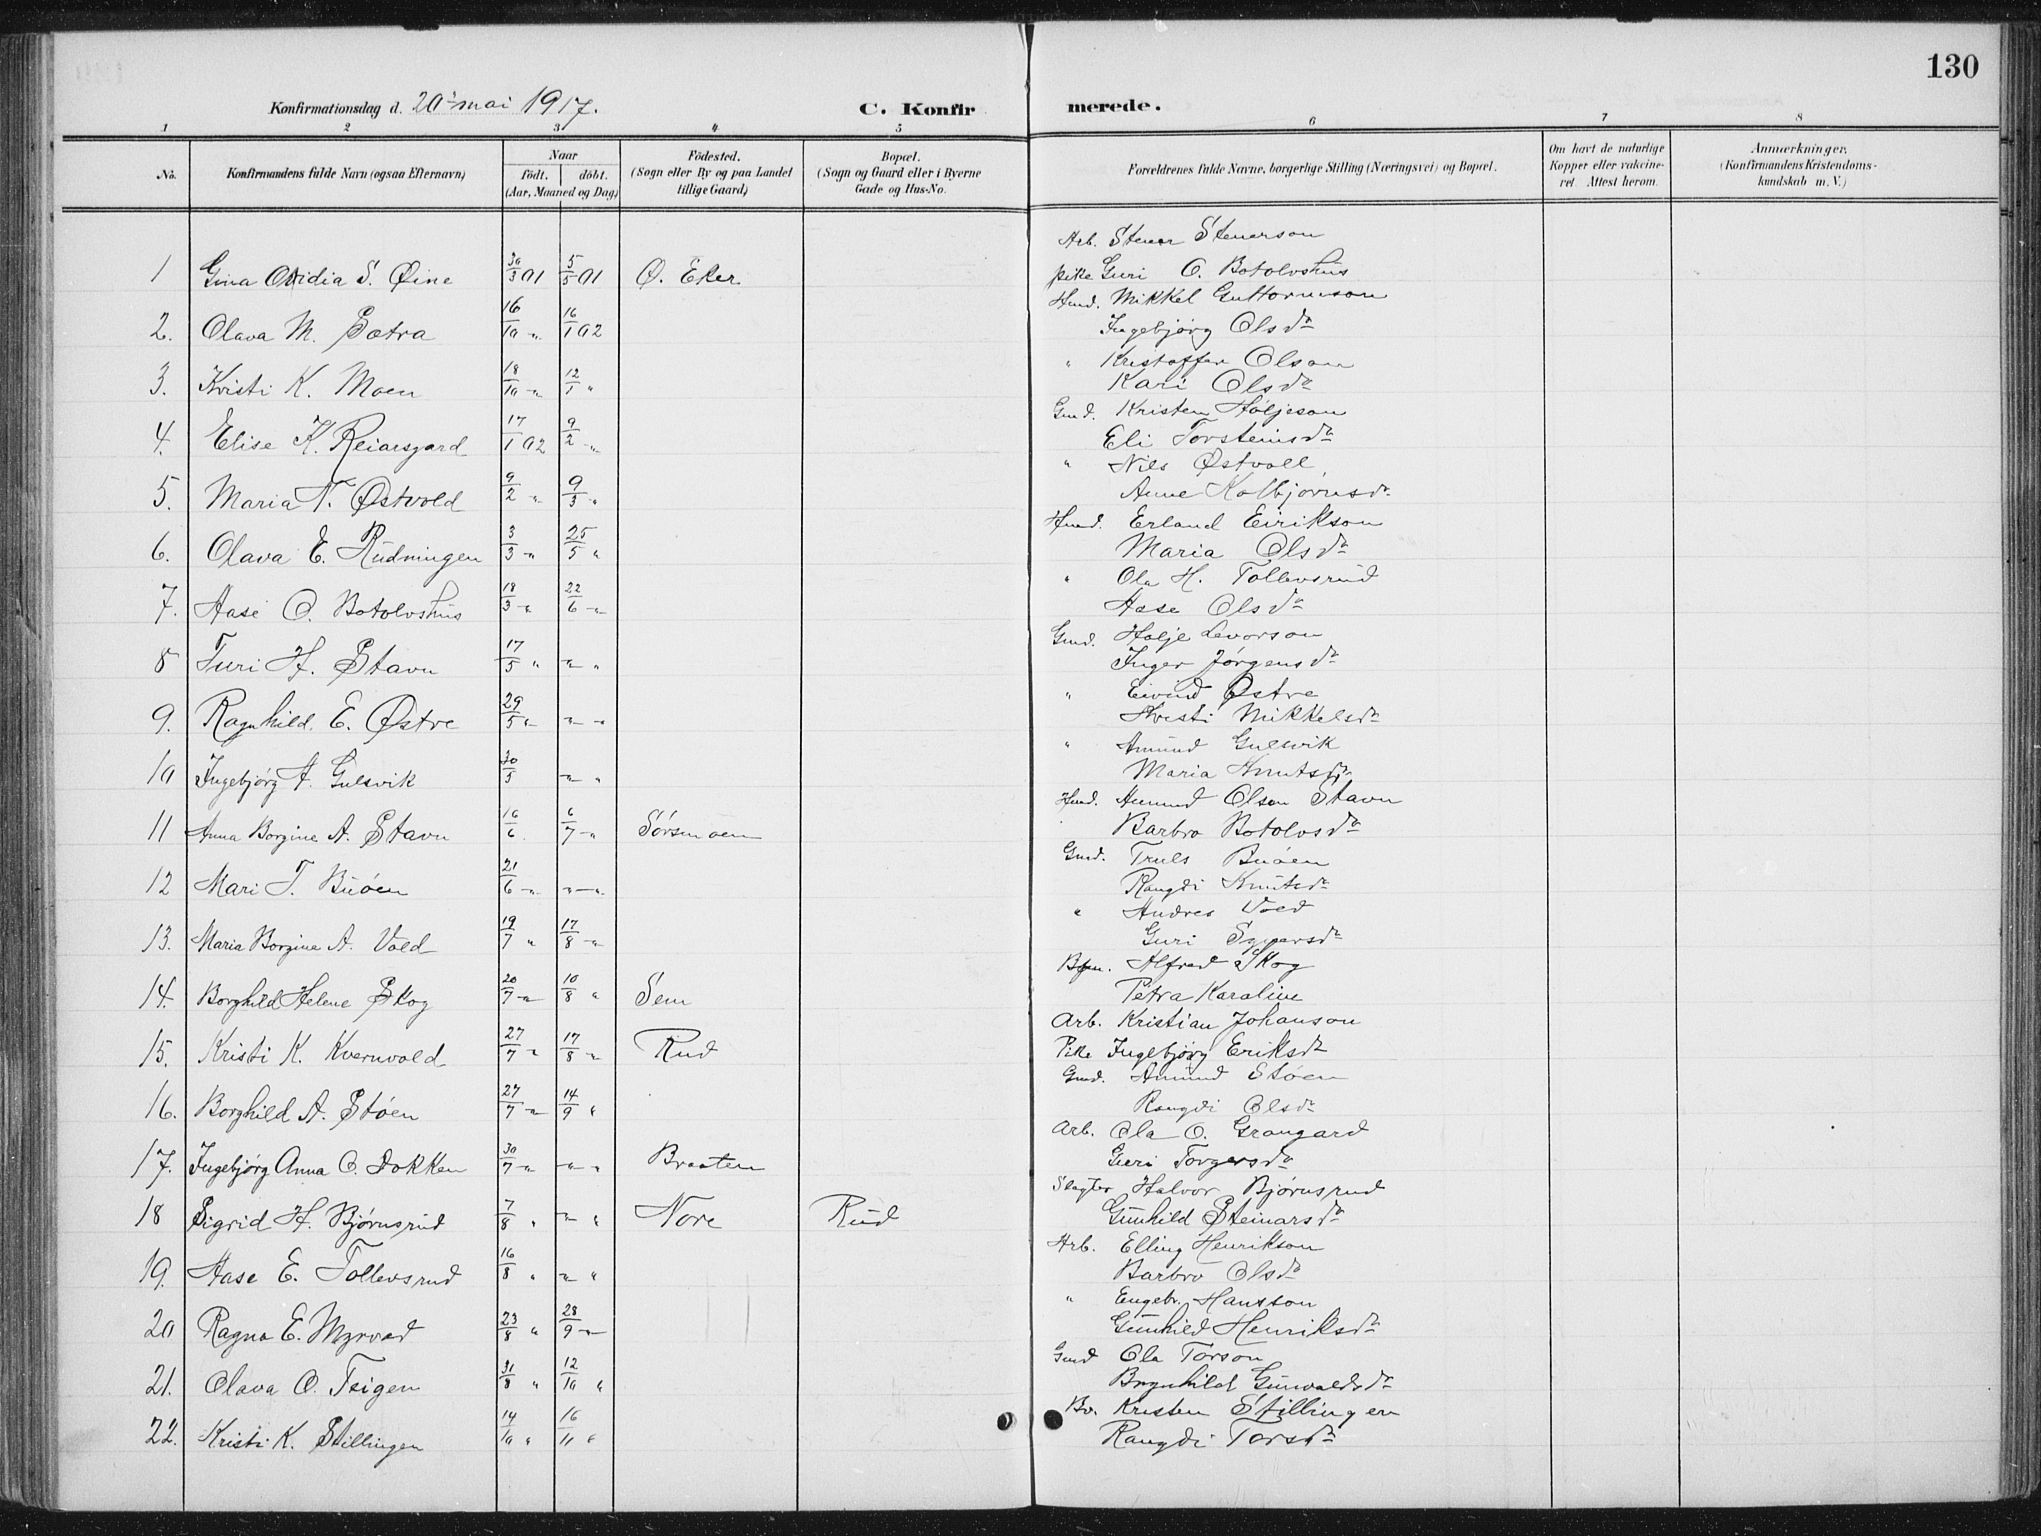 130
Konfirmationsdag d. 20. mai 1917. C. Konfirmerede.
1 2 3 4 5 6 7 8
No. Konfirmandens fulde Navn (ogsaa Efternavn) Naar født. døbt. (Aar, Maaned og Dag) Födested. (Sogn eller By og paa Landet tillige Gaard) Bopæl. (Sogn og Gaard eller i Byerne Gade og Hus-No. Forældrenes fulde Navne, borgerlige Stilling (Næringsvei) og Bopæl. Om havt de naturlige Kopper eller vakcineret. Attest herom. Anmærkninger, (Konfirmandens Kristendomskundskab m. V.)
Arb. Stener Stenerson
1 Gina Ovidia S. Øine 30/3 01 5/5 01 Ø. Eker pike Guri O. Botolvshus
Gmd. Mikkel Guttormson
2. Olava M. Sætra 16/10 " 16/1 02 Ingebjørg Olsdr
" Kristoffer Olson
3. Kristi K. Moen 18/10 " 12/1 " Kari Olsdr
Gmd. Kristen Høljeson
4. Elise K. Reiarsgard 17/1 02 9/2 " Eli Torsteinsdr
" Nils Østvoll
5. Maria N. Østvold 9/2 " 9/3 " Anne Kolbjørnsdr
Husd. Erland Eirikson
6. Olava E. Rudningen 3/3 " 25/5 " Maria Olsdr
" Ola H. Tollevsrud
7. Aase O. Botolvshus 18/3 " 22/6 " Aase Olsdr
Gmd. Holje Levorson
8 Turi H. Stavn 17/5 " " " Inger Jørgensdr
" Eivind Østre
9. Ragnhild E. Østre 29/5 " " " Kristi Mikkelsdr
" Amund Gulsvik
10 Ingebjørg A. Gulsvik 30/5 " " Maria Knutsdr
Husd. Amund Olson Stavn
11 Anna Borgine A. Stavn 16/6 6/7 " Sørsmoen Barbro Botolvsdr
Gmd. Truls Buøen
12 Mari T. Buøen 21/6 " " " Rangdi Knutsdr
" Andres Vold
13. Maria Borgine A. Vold 19/7 " 17/8 " Guri Sjugarsdr
Alfred Skog
14. Borghild Helene Skog 20/7 " 10/8 " Sem Petra Karoline
Arb. Kristian Johanson
15. Kristi K. Kvernvold 27/7 " 17/8 " Rud Pike Ingebjørg Eriksdr
Gmd. Amund Støen
16. Borghild A. Støen 27/7 " 14/9 " Rangdi Olsdr
Arb. Ola O. Grangard
17. Ingebjørg Anna O. Dokken 30/7 " " " Braaten Guri Torgersdr
Slagter Halvor Bjørnsrud
18 Sigrid H. Bjørnsrud 7/8 " " " Nore Rud Gunhild Steinarsdr
Arb. Elling Henrikson
19. Aase E. Tollevsrud 16/8 " " " Barbro Olsdr
" Engebr. Hansson
20 Ragna E. Myrvad 23/8 " 28/9 " Gunhild Henriksdr
Gmd Ola Torson
21. Olava O. Teigen 31/8 " 12/10 " Brynhild Gunvaldsdr
Bv. Kristen Stillingen
22. Kristi K. Stillingen 14/10 " 16/11 " Rangdi Torsdr